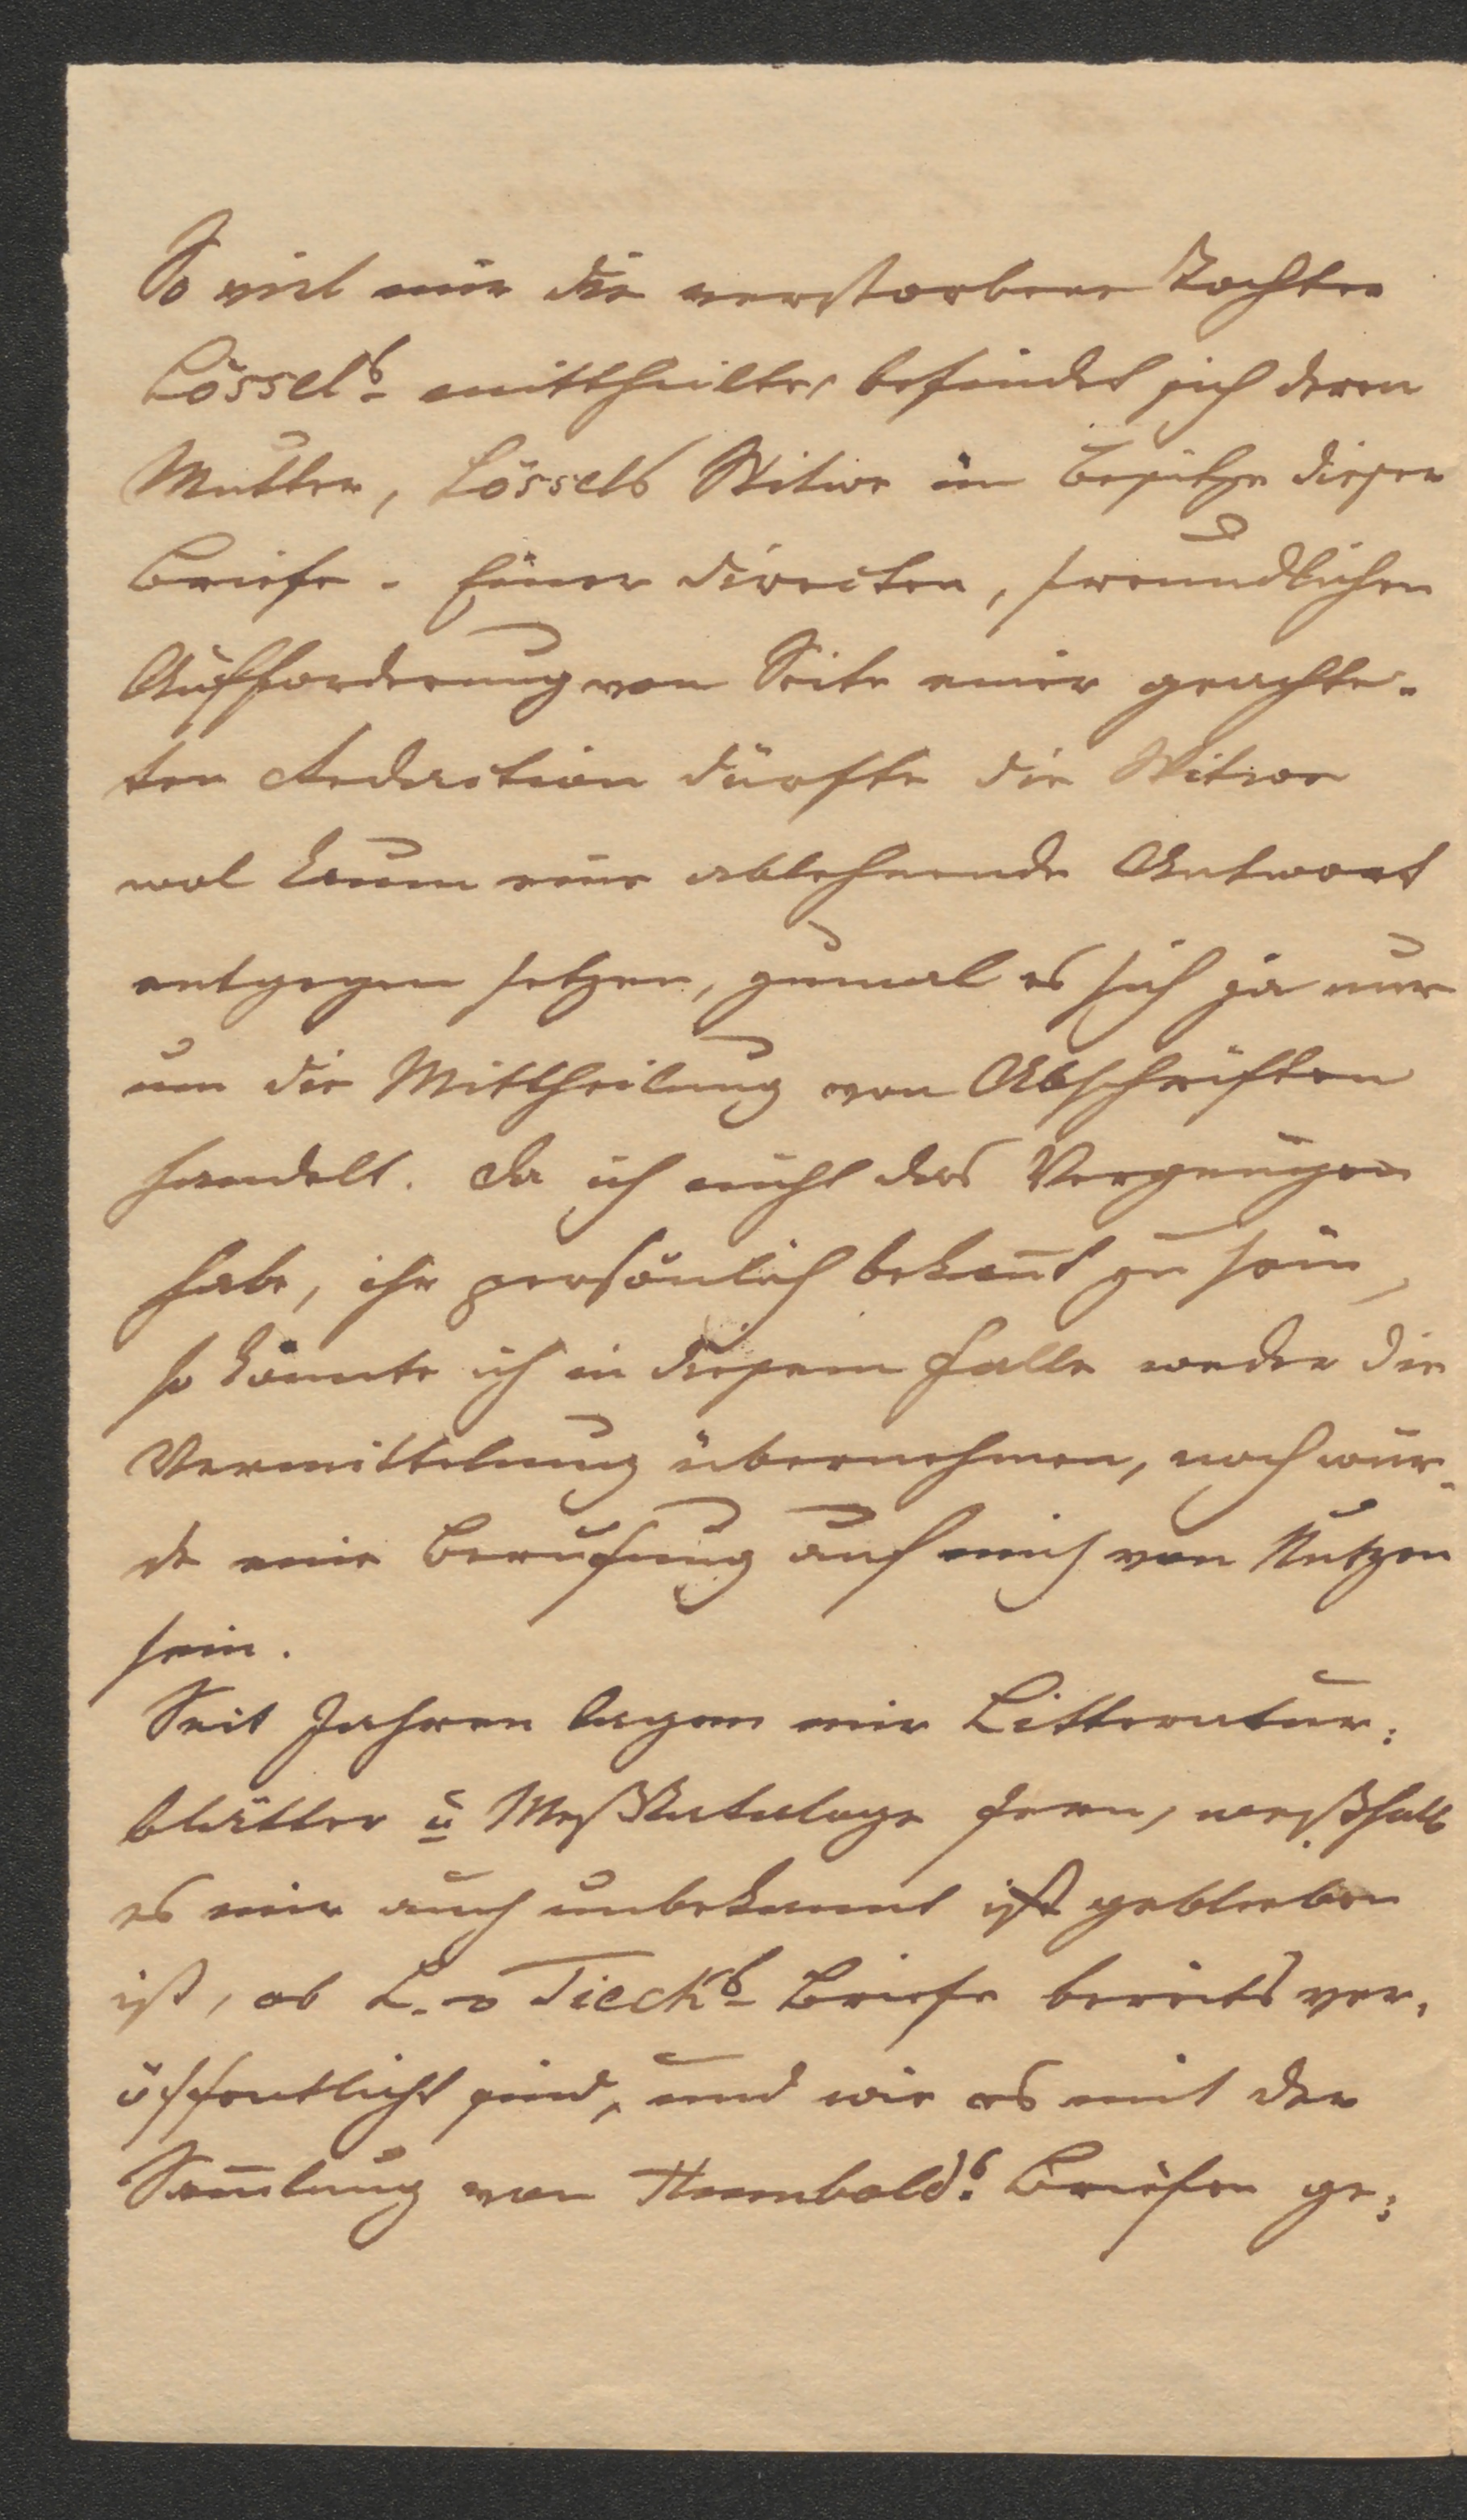 So viel mir die verstorbene Tochter
Lössels mittheilte, befindet sich deren
Mutter, Lössels Witwe im Besitze dieser
Briefe. Einer directen, freundlichen
Aufforderung von Seite einer geachte-
ten Redaction dürfte die Witwe
wol kaum eine ablehnende Antwort
entgegen setzen, zumal es sich ja nur
um die Mittheilung von Abschriften
handelt. Da ich nicht das Vergnügen
habe, ihr persönlich bekan̄t zu sein,
so könnte ich in diesem Falle weder die
Vermittelung übernehmen, noch wür-
de eine Berufung auf mich von Nutzen
sein.
Seit Jahren lagen mir Litteratur-
blätter u Meßkataloge fern, weßhalb
es mir auch unbekannt ist geblieben
ist, ob L. v Tiecks Briefe bereits ver-
öffentlicht sind, und wie es mit der
Sam̄lung von Humbolds Briefen ge-